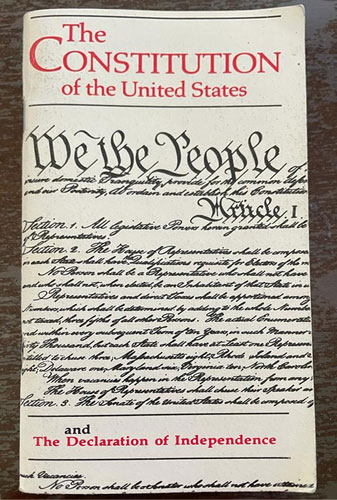 The
CONSTITUTION
of the United States
We the People of
insure domestic Tranquility, provide for the common defence
and our Posterity, do ordain and establish this Constitution
Article I
Section 1. All legislative Powers herein granted shall be
of Representatives.
Section 2. The House of Representatives shall be compose
each State shall have Qualifications requisite for Electors of the
No Person shall be a Representative who shall not have
and who shall not, when elected, be an Inhabitant of that State in
Representatives and direct Taxes shall be apportioned among
Numbers, which shall be determined by adding to the whole Number
not taxed, three fifths of all other Persons. The actual Enumeration
and within every subsequent Term of ten Years, in such Manner
thirty Thousand, but each State shall have at Least one Represen
entitled to chuse three, Massachusetts eight, Rhode Island and
eight, Delaware one, Maryland six, Virginia ten, North Carolina
When vacancies happen in the Representation from any
The House of Representatives shall chuse their Speaker
Section. 3. The Senate of the United States shall be composed of
and
The Declaration of Independence
such Vacancies.
No Person shall be a Senator who shall not have attained